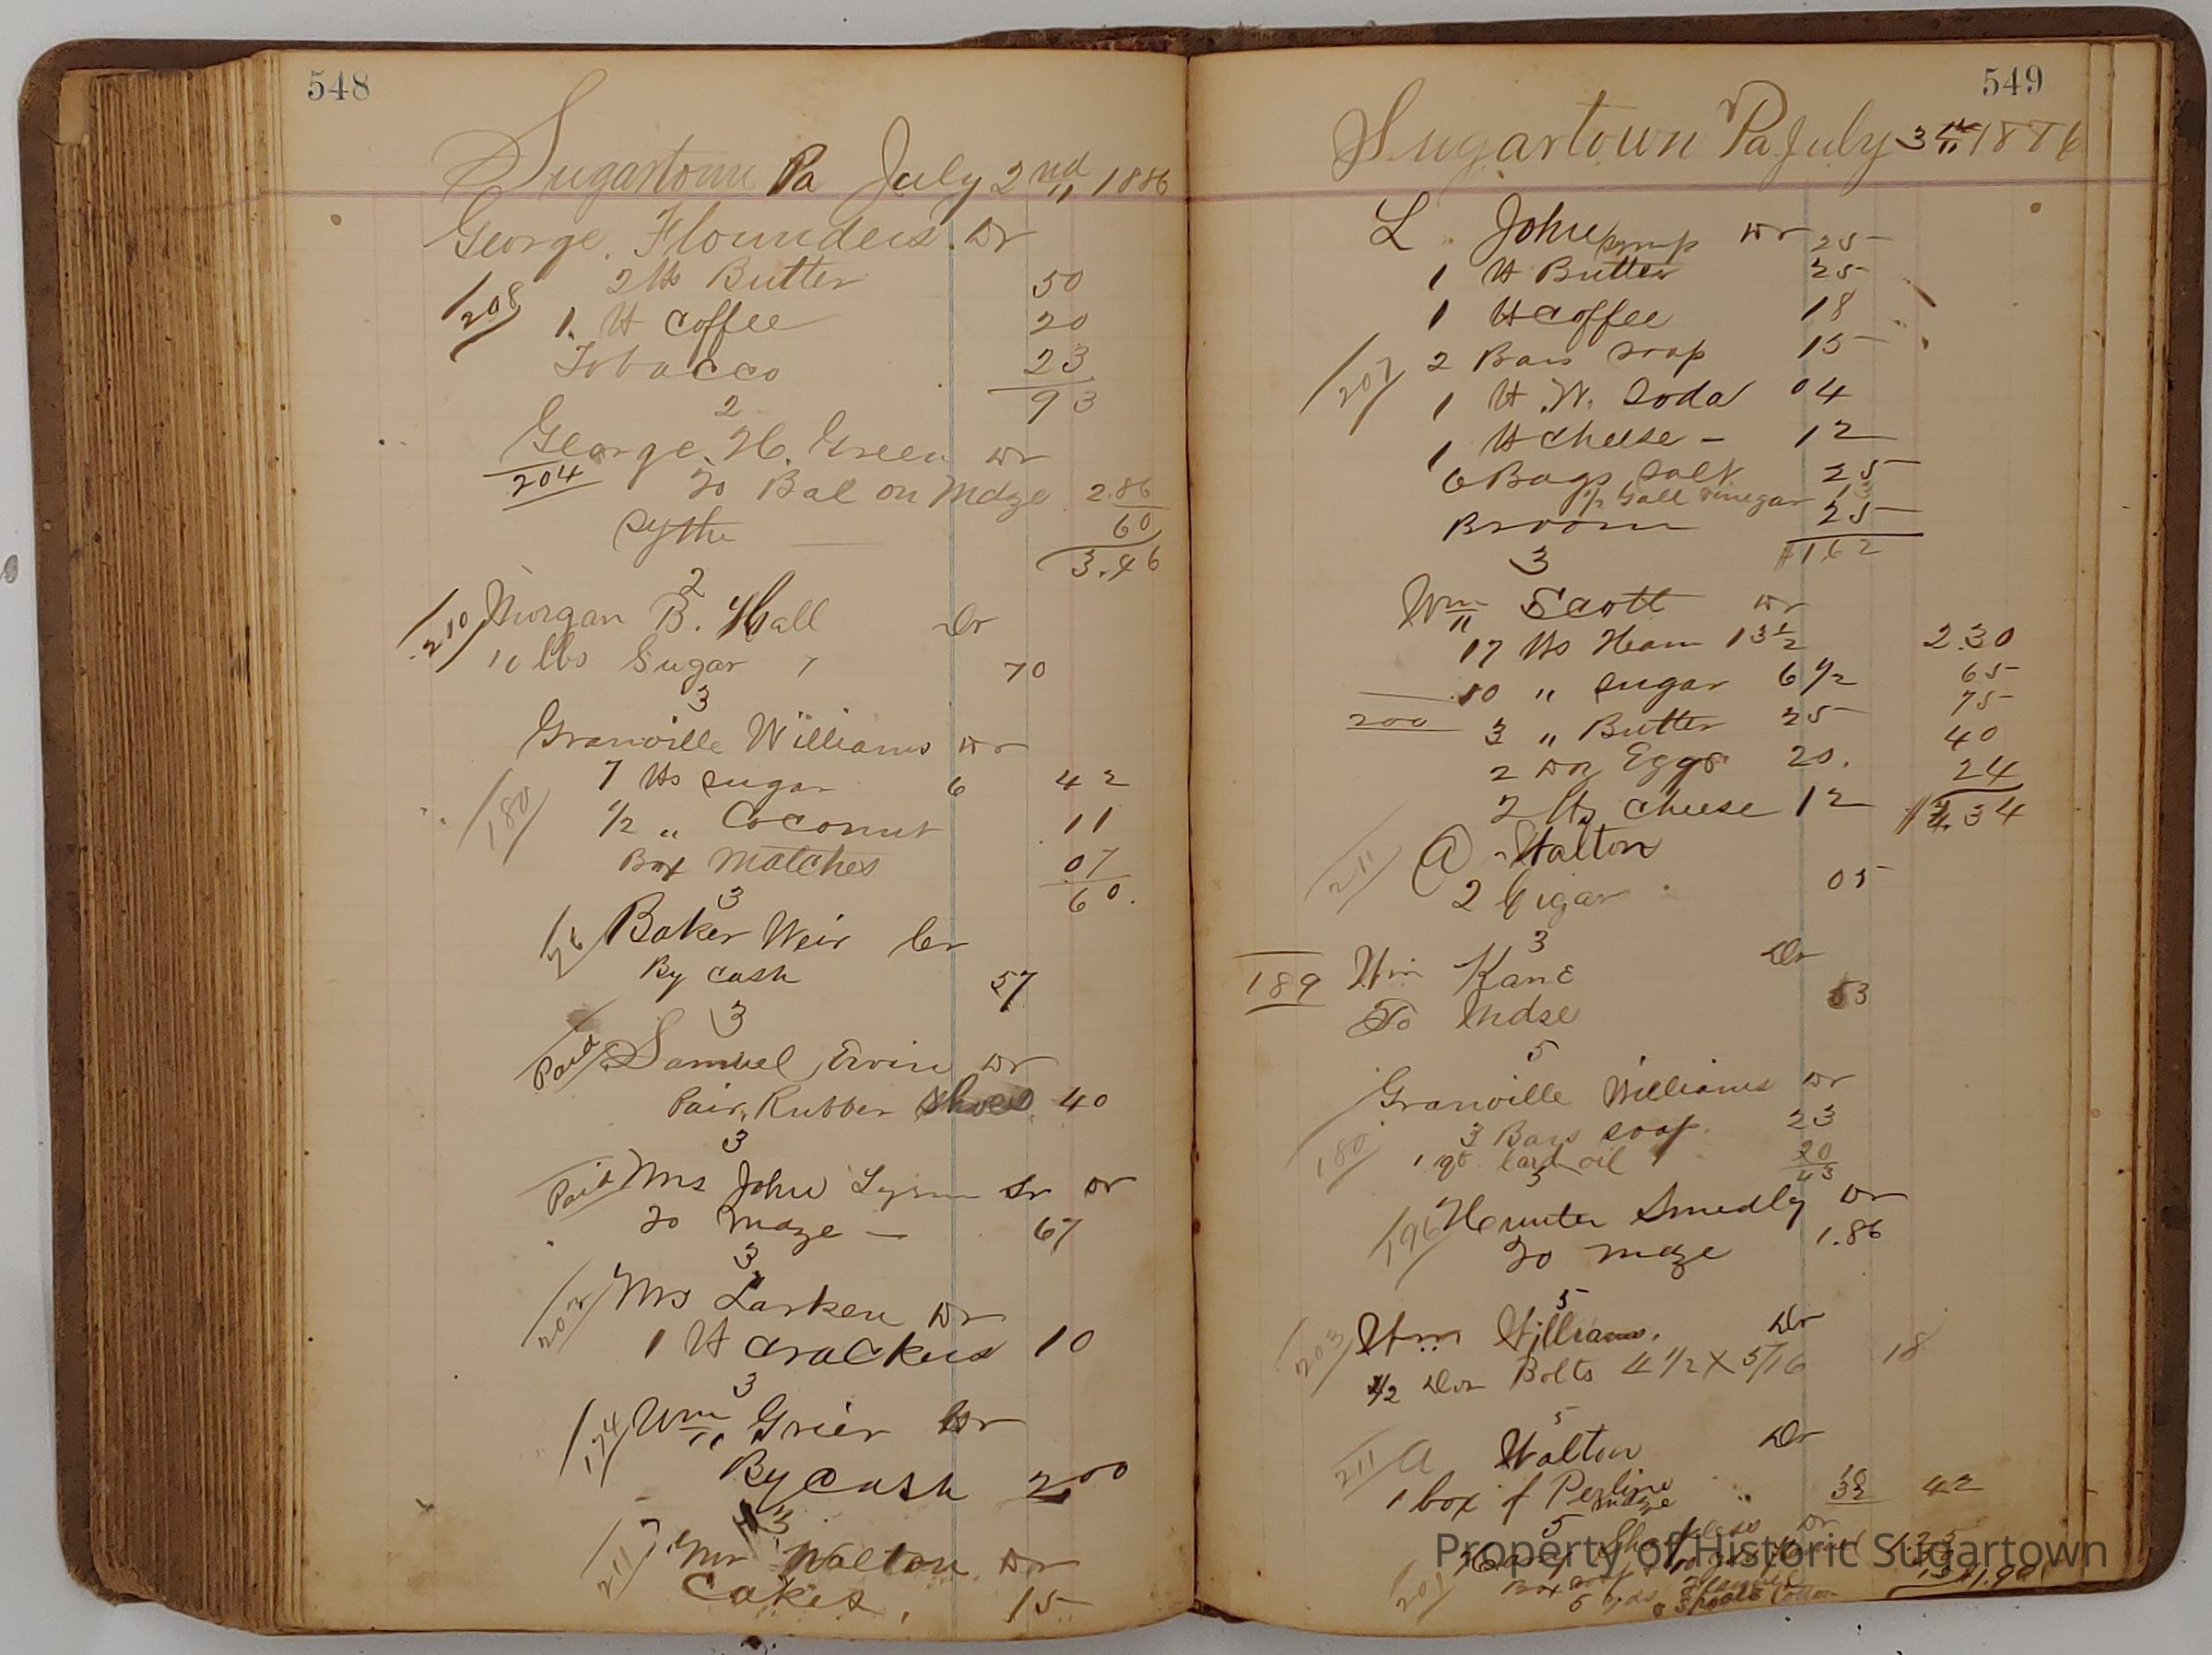 548
Sugartown Pa July 2nd 1886
George. Flounders. Dr
208
2 lbs Butter 50
1. lb Coffee 20
Tobacco 23
93
2
George. H. Green Dr
204
To Bal on Mdze 2.86
Sythe 60
3.46
2
210 Morgan B. Hall Dr
10 lbs Sugar 7 70
3
Granville Williams Dr
180
7 lbs sugar 6 42
1/2 " Coconut 11
Box Matches 07
60.
3
Baker Weir Cr
By Cash 57
3
Paid Samuel Ervin Dr
Pair, Rubber Shoes 40
3
Paid Mrs John Lynn Sr Dr
To Mdze — 67
3
Mrs Larken Dr
1 lb Crackers 10
3
174 Wm Grier
By Cash 2.00
3
211 Mr Walton Dr
Cakes, 15
549
Sugartown Pa July 3 1886
L. John Dr
syrup 25
1 lb Butter 25
1 lb Coffee 18
207
2 Bars soap 15
1 lb .W. Soda 04
1 lb cheese - 12
6 Bags salt 25
1/2 Gall vinegar 13
Broom 25
$1.62
3
Wm Scott Dr
17 lbs Ham 13 1/2 2.30
10 " sugar 6 1/2 65
200
3 " Butter 25 75
2 Doz Eggs 20. 40
2 lbs cheese 12 24
$4.34
211 A Walton
2 Cigars 05
3
189 Wm Kane Dr
To Mdse 53
5
Granville Williams Dr
180
3 Bars soap. 23
1 qt. lard oil 20
43
5
196 Hunter Smedly Dr
To mdze 1.86
5
203 Wm Williams. Dr
1/2 Doz Bolts 4 1/2 X 5/16 18
5
211 A Walton Dr
1 box of Perline 10
mdze 32 42
5
Harry Dr
Spools Cotton
1.90
Property of Historic Sugartown